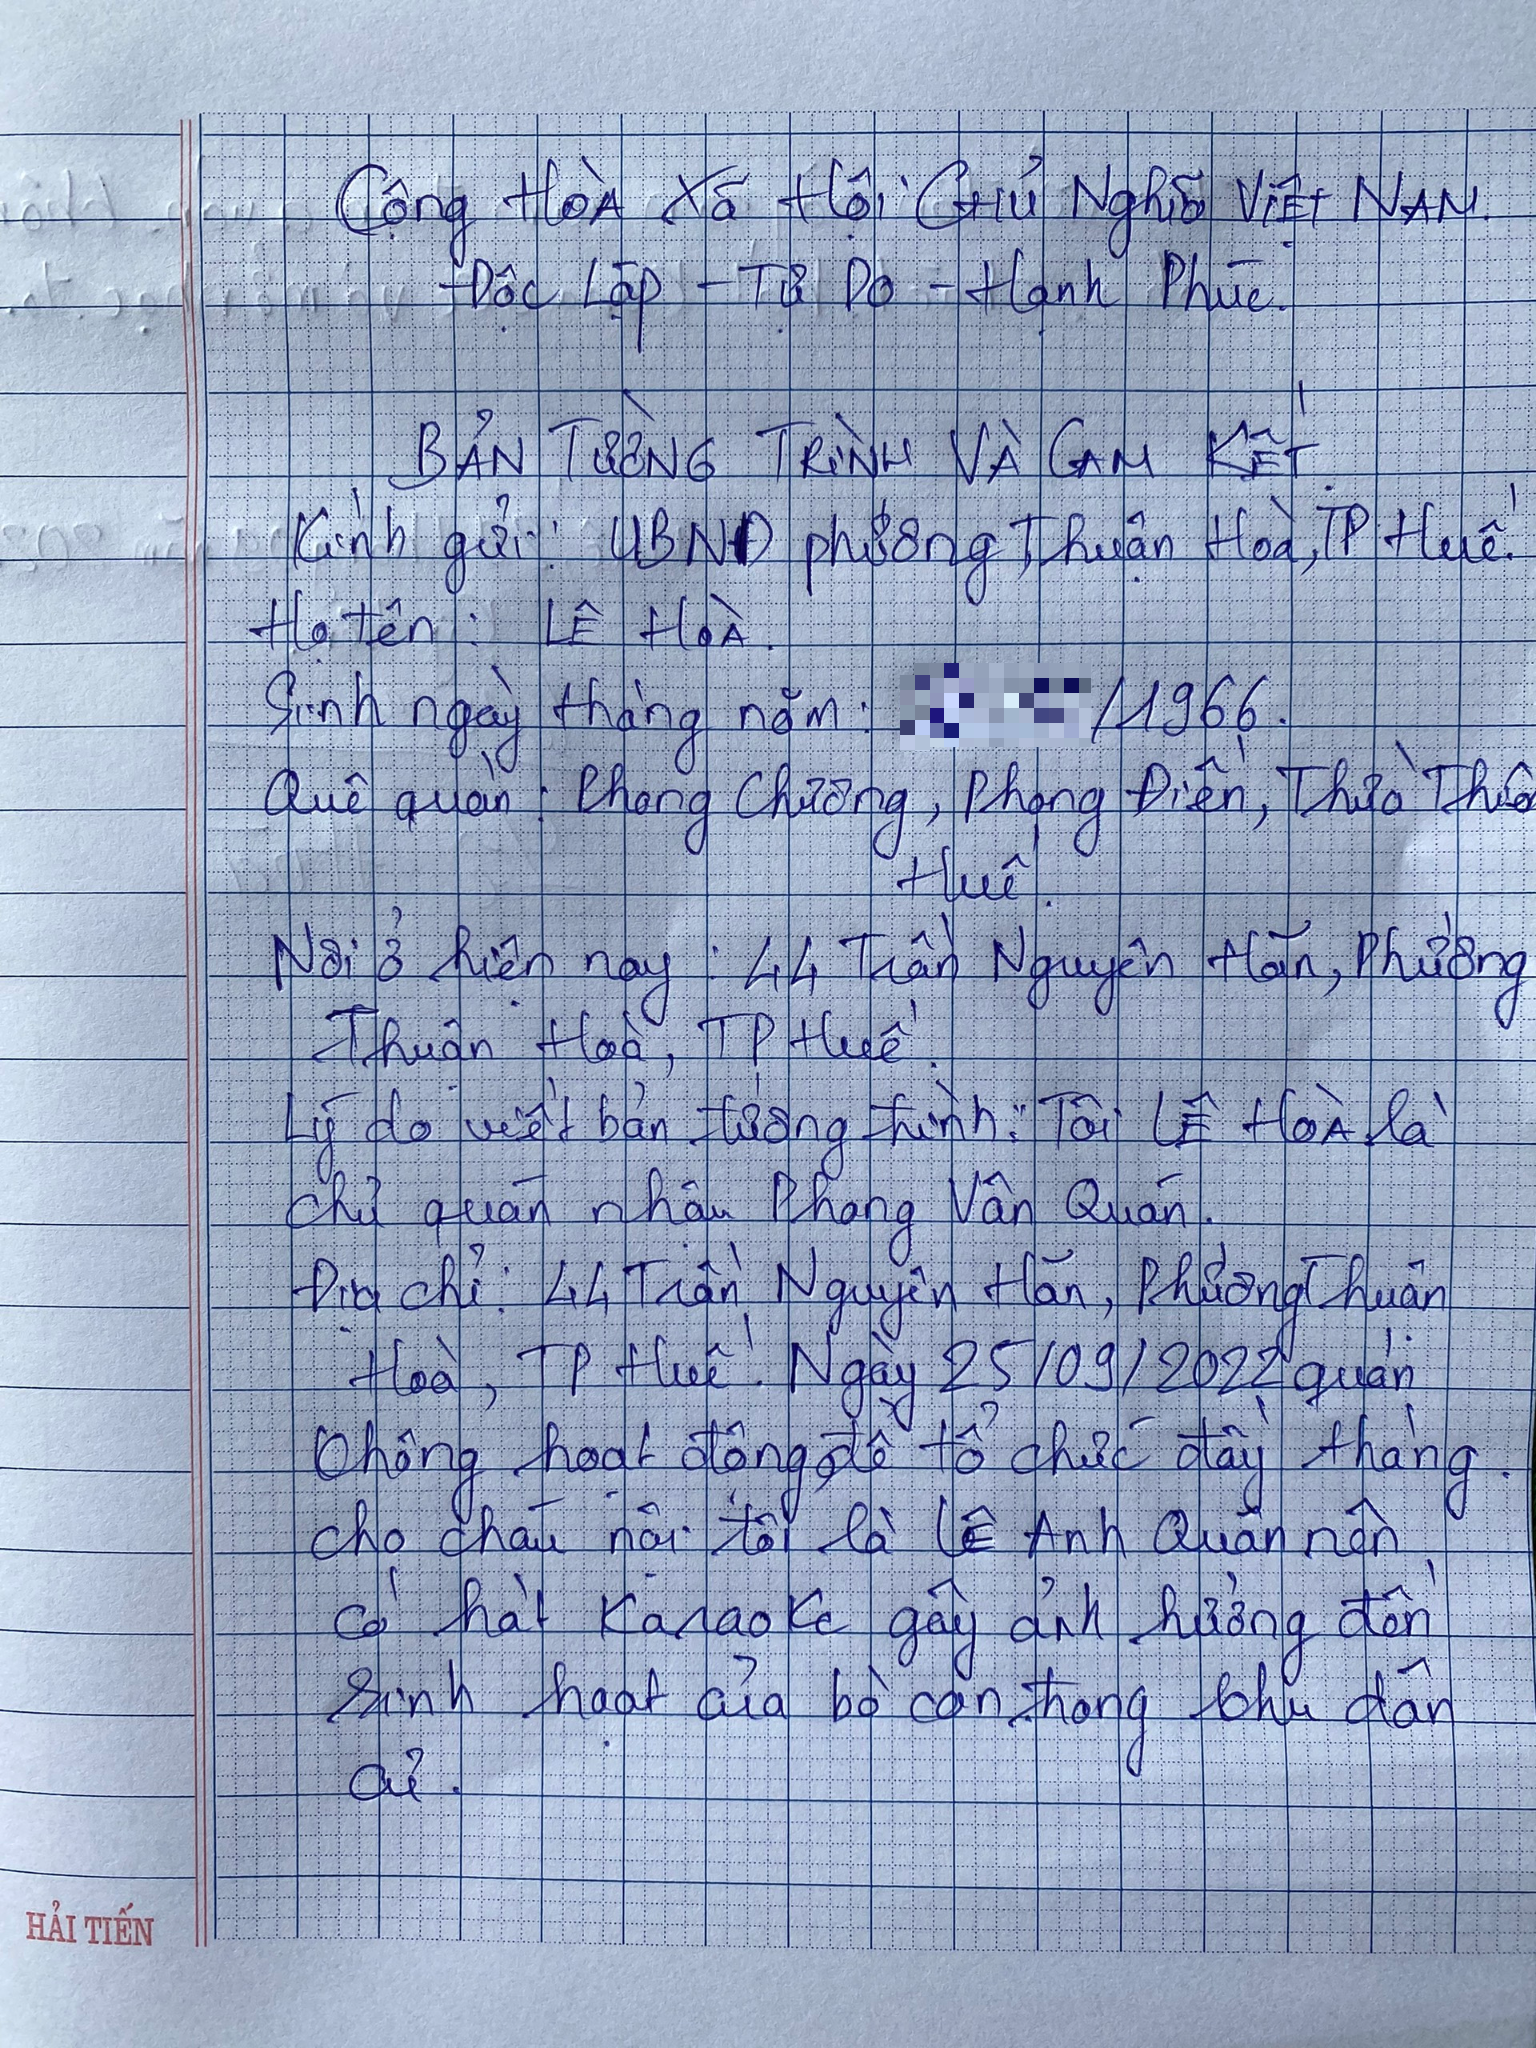 Cộng Hoà Xã Hội Chủ Nghĩa Việt Nam.
Độc Lập - Tự Do - Hạnh Phúc.
BẢN TƯỜNG TRÌNH VÀ CAM KẾT.
Kính gửi: UBND phường Thuận Hoà, TP Huế.
Họ tên: LÊ HOÀ.
Sinh ngày tháng năm: /1966.
Quê quán: Phong Chương, Phong Điền, Thừa Thiê
Huế.
Nơi ở hiện nay: 44 Trần Nguyên Hãn, Phường
Thuận Hoà, TP Huế.
Lý do viết bản tường trình: Tôi LÊ HOÀ là
chủ quán nhậu Phong Vân Quán.
Địa chỉ: 44 Trần Nguyên Hãn, Phường Thuận
Hoà, TP Huế. Ngày 25/09/2022 quán
không hoạt động, để tổ chức đầy tháng.
cho cháu nội tôi là LÊ Anh Quân nên
có hát Karaoke gây ảnh hưởng đến
sinh hoạt của bà con trong khu dân
cư.
HẢI TIẾN